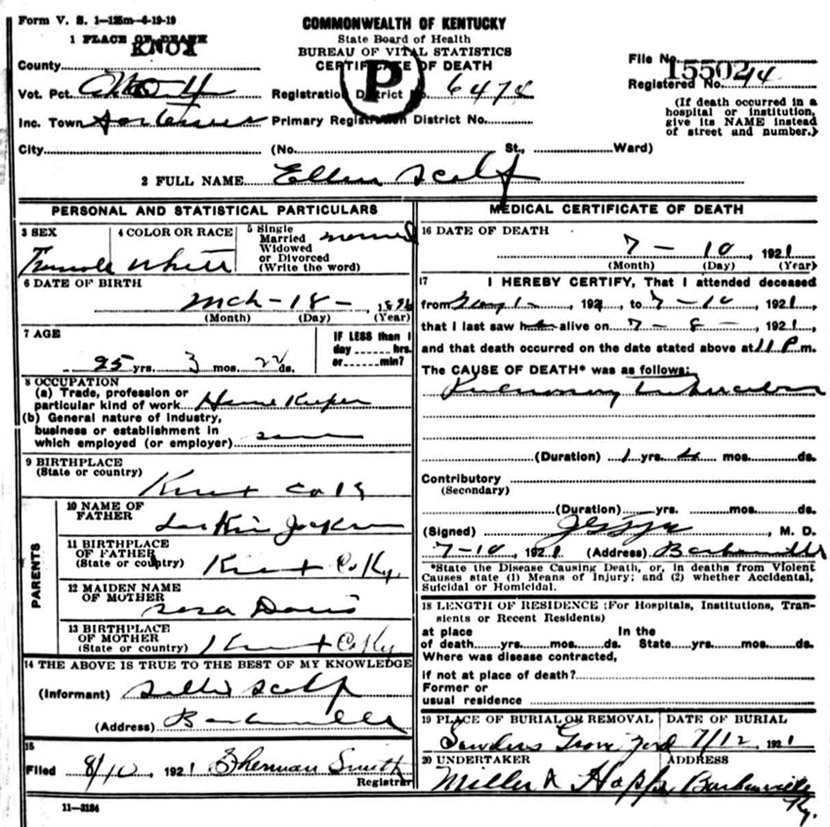 Form V. S. 1—125m—6-19-19
COMMONWEALTH OF KENTUCKY
State Board of Health
BUREAU OF VITAL STATISTICS
CERTIFICATE OF DEATH
1 PLACE OF DEATH
KNOX
County
Vot. Pct.
Inc. Town
City
P
Registration District No. 6478
Primary Registration District No.
(No. St., Ward)
File No. 15502
Registered No. 44
(If death occurred in a
hospital or institution,
give its NAME instead
of street and number.)
2 FULL NAME Ellen Scalf
PERSONAL AND STATISTICAL PARTICULARS
3 SEX
Female
4 COLOR OR RACE
White
5 Single
Married
Widowed
or Divorced
(Write the word)
married
6 DATE OF BIRTH
Mch - 18 - 1896
(Month) (Day) (Year)
7 AGE
25 yrs. 3 mos. 22 ds.
IF LESS than 1
day hrs.
or min?
8 OCCUPATION
(a) Trade, profession or
particular kind of work House Keeper
(b) General nature of industry,
business or establishment in
which employed (or employer)
9 BIRTHPLACE
(State or country)
Knox Co Ky
PARENTS
10 NAME OF
FATHER
Larkin Jackson
11 BIRTHPLACE
OF FATHER
(State or country)
Knox Co Ky.
12 MAIDEN NAME
OF MOTHER
Davis
13 BIRTHPLACE
OF MOTHER
(State or country)
Knox Co Ky
14 THE ABOVE IS TRUE TO THE BEST OF MY KNOWLEDGE
(Informant) Scalf
(Address) Barbourville
15
Filed 8/10, 1921 Sherman Smith
Registrar
11—3184
MEDICAL CERTIFICATE OF DEATH
16 DATE OF DEATH
7 - 10, 1921
(Month) (Day) (Year)
17 I HEREBY CERTIFY, That I attended deceased
from 192 to 7-10, 1921
that I last saw h alive on 7 - 8 -, 1921,
and that death occurred on the date stated above at 11 P m.
The CAUSE OF DEATH* was as follows:
Pulmonary Tuberculosis
(Duration) 1 yrs. mos. ds.
Contributory
(Secondary)
(Duration) yrs. mos. ds.
(Signed) M. D.
7-10, 1921 (Address) Barbourville
*State the Disease Causing Death, or, in deaths from Violent
Causes state (1) Means of Injury; and (2) whether Accidental,
Suicidal or Homicidal.
18 LENGTH OF RESIDENCE (For Hospitals, Institutions, Tran-
sients or Recent Residents)
at place In the
of death yrs. mos. ds. State yrs. mos. ds.
Where was disease contracted,
if not at place of death?
Former or
usual residence
19 PLACE OF BURIAL OR REMOVAL DATE OF BURIAL
Grove Yard 7/12, 1921
20 UNDERTAKER ADDRESS
Miller & Hopper Barbourville
Ky.